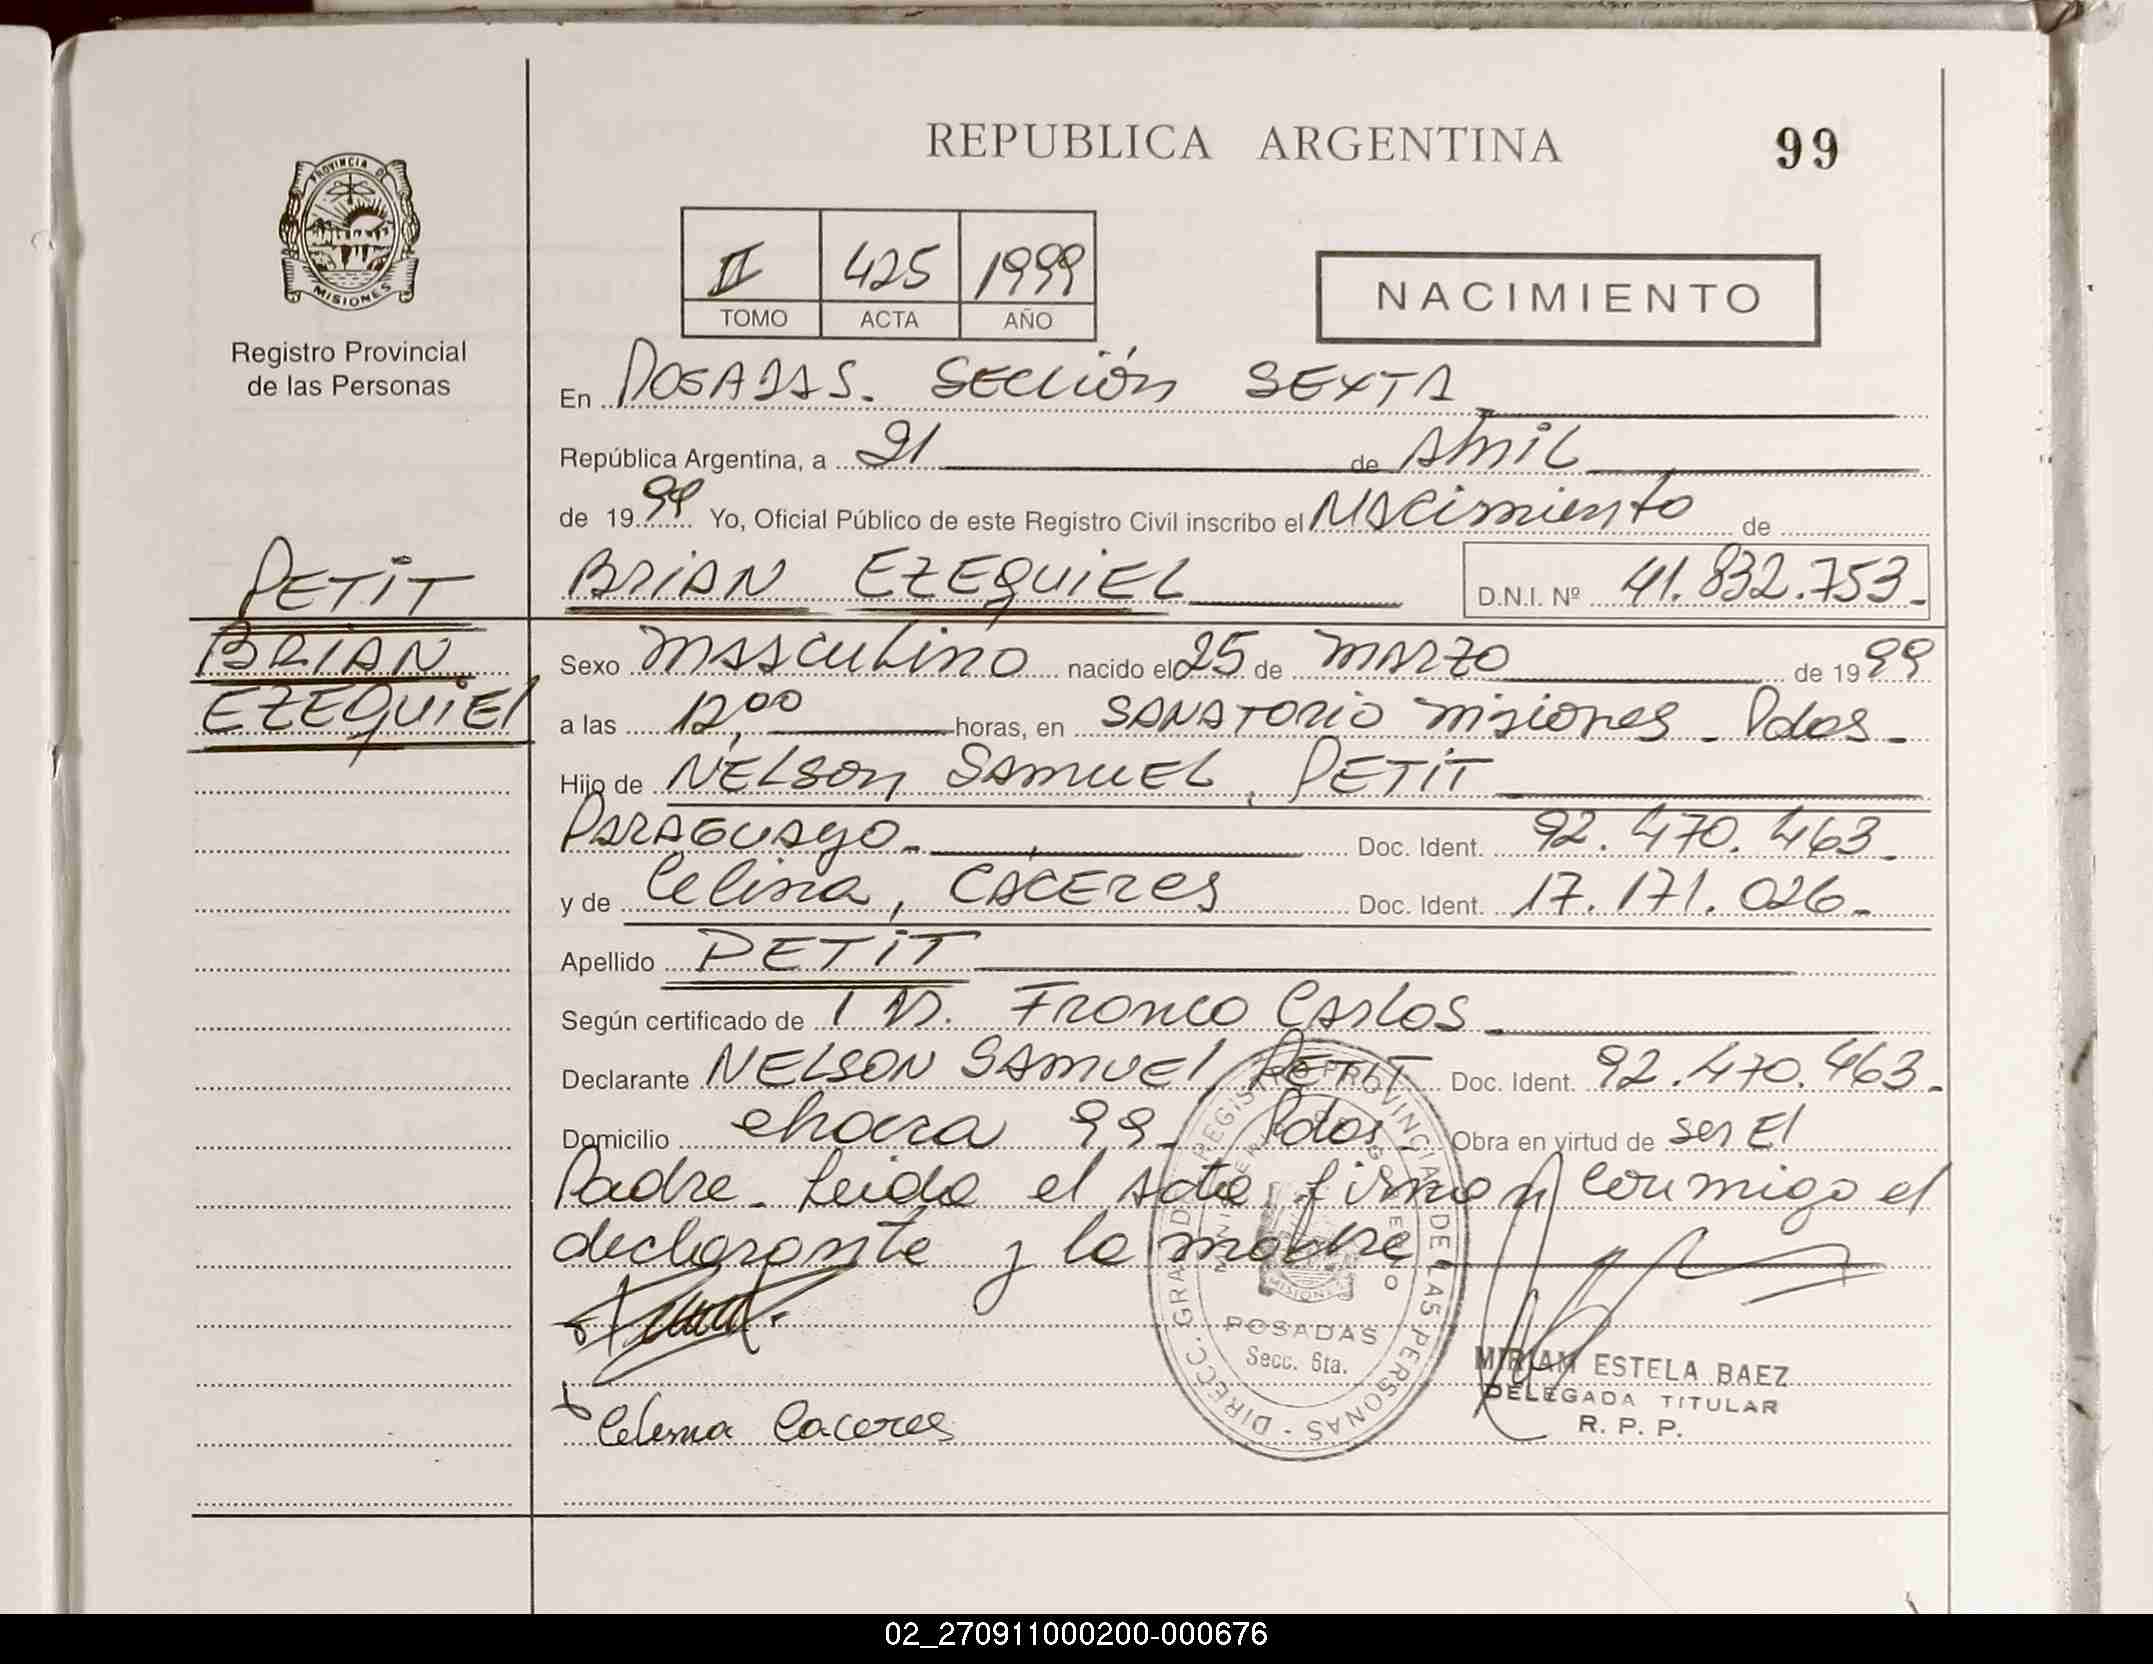 REPUBLICA ARGENTINA
99
PROVINCIA DE
MISIONES
Registro Provincial
de las Personas
II 425 1999
TOMO ACTA AÑO
NACIMIENTO
En POSADAS. SECCIÓN SEXTA
República Argentina, a 21 de Abril
de 1999 Yo, Oficial Público de este Registro Civil inscribo el NACimiento de
BRIAN EZEQUIEL D.N.I. Nº 41.832.753.-
PETIT
BRIAN
EZEQUIEL
Sexo MASCULino nacido el 25 de MARZO de 1999
a las 12,00 horas, en SANATORIO Misiones - Pdas -
Hijo de NELSON SAMUEL, PETIT
PARAGUAYO.- Doc. Ident. 92.470.463.-
y de Celina, CÁCERES Doc. Ident. 17.171.026.-
Apellido PETIT
Según certificado de Franco Carlos
Declarante NELSON SAMUEL, PETIT Doc. Ident. 92.470.463.-
Domicilio chacra 99- Pdas.- Obra en virtud de ser El
Padre - Leida el acta, firman conmigo el
declarante y la madre
DIRECC. GRAL. DE REGISTRO PROVINCIAL DE LAS PERSONAS -
MINISTERIO DE GOBIERNO
MISIONES
POSADAS
Secc. 6ta.
MIRIAM ESTELA BAEZ
DELEGADA TITULAR
R. P. P.
Celina Caceres
02_270911000200-000676